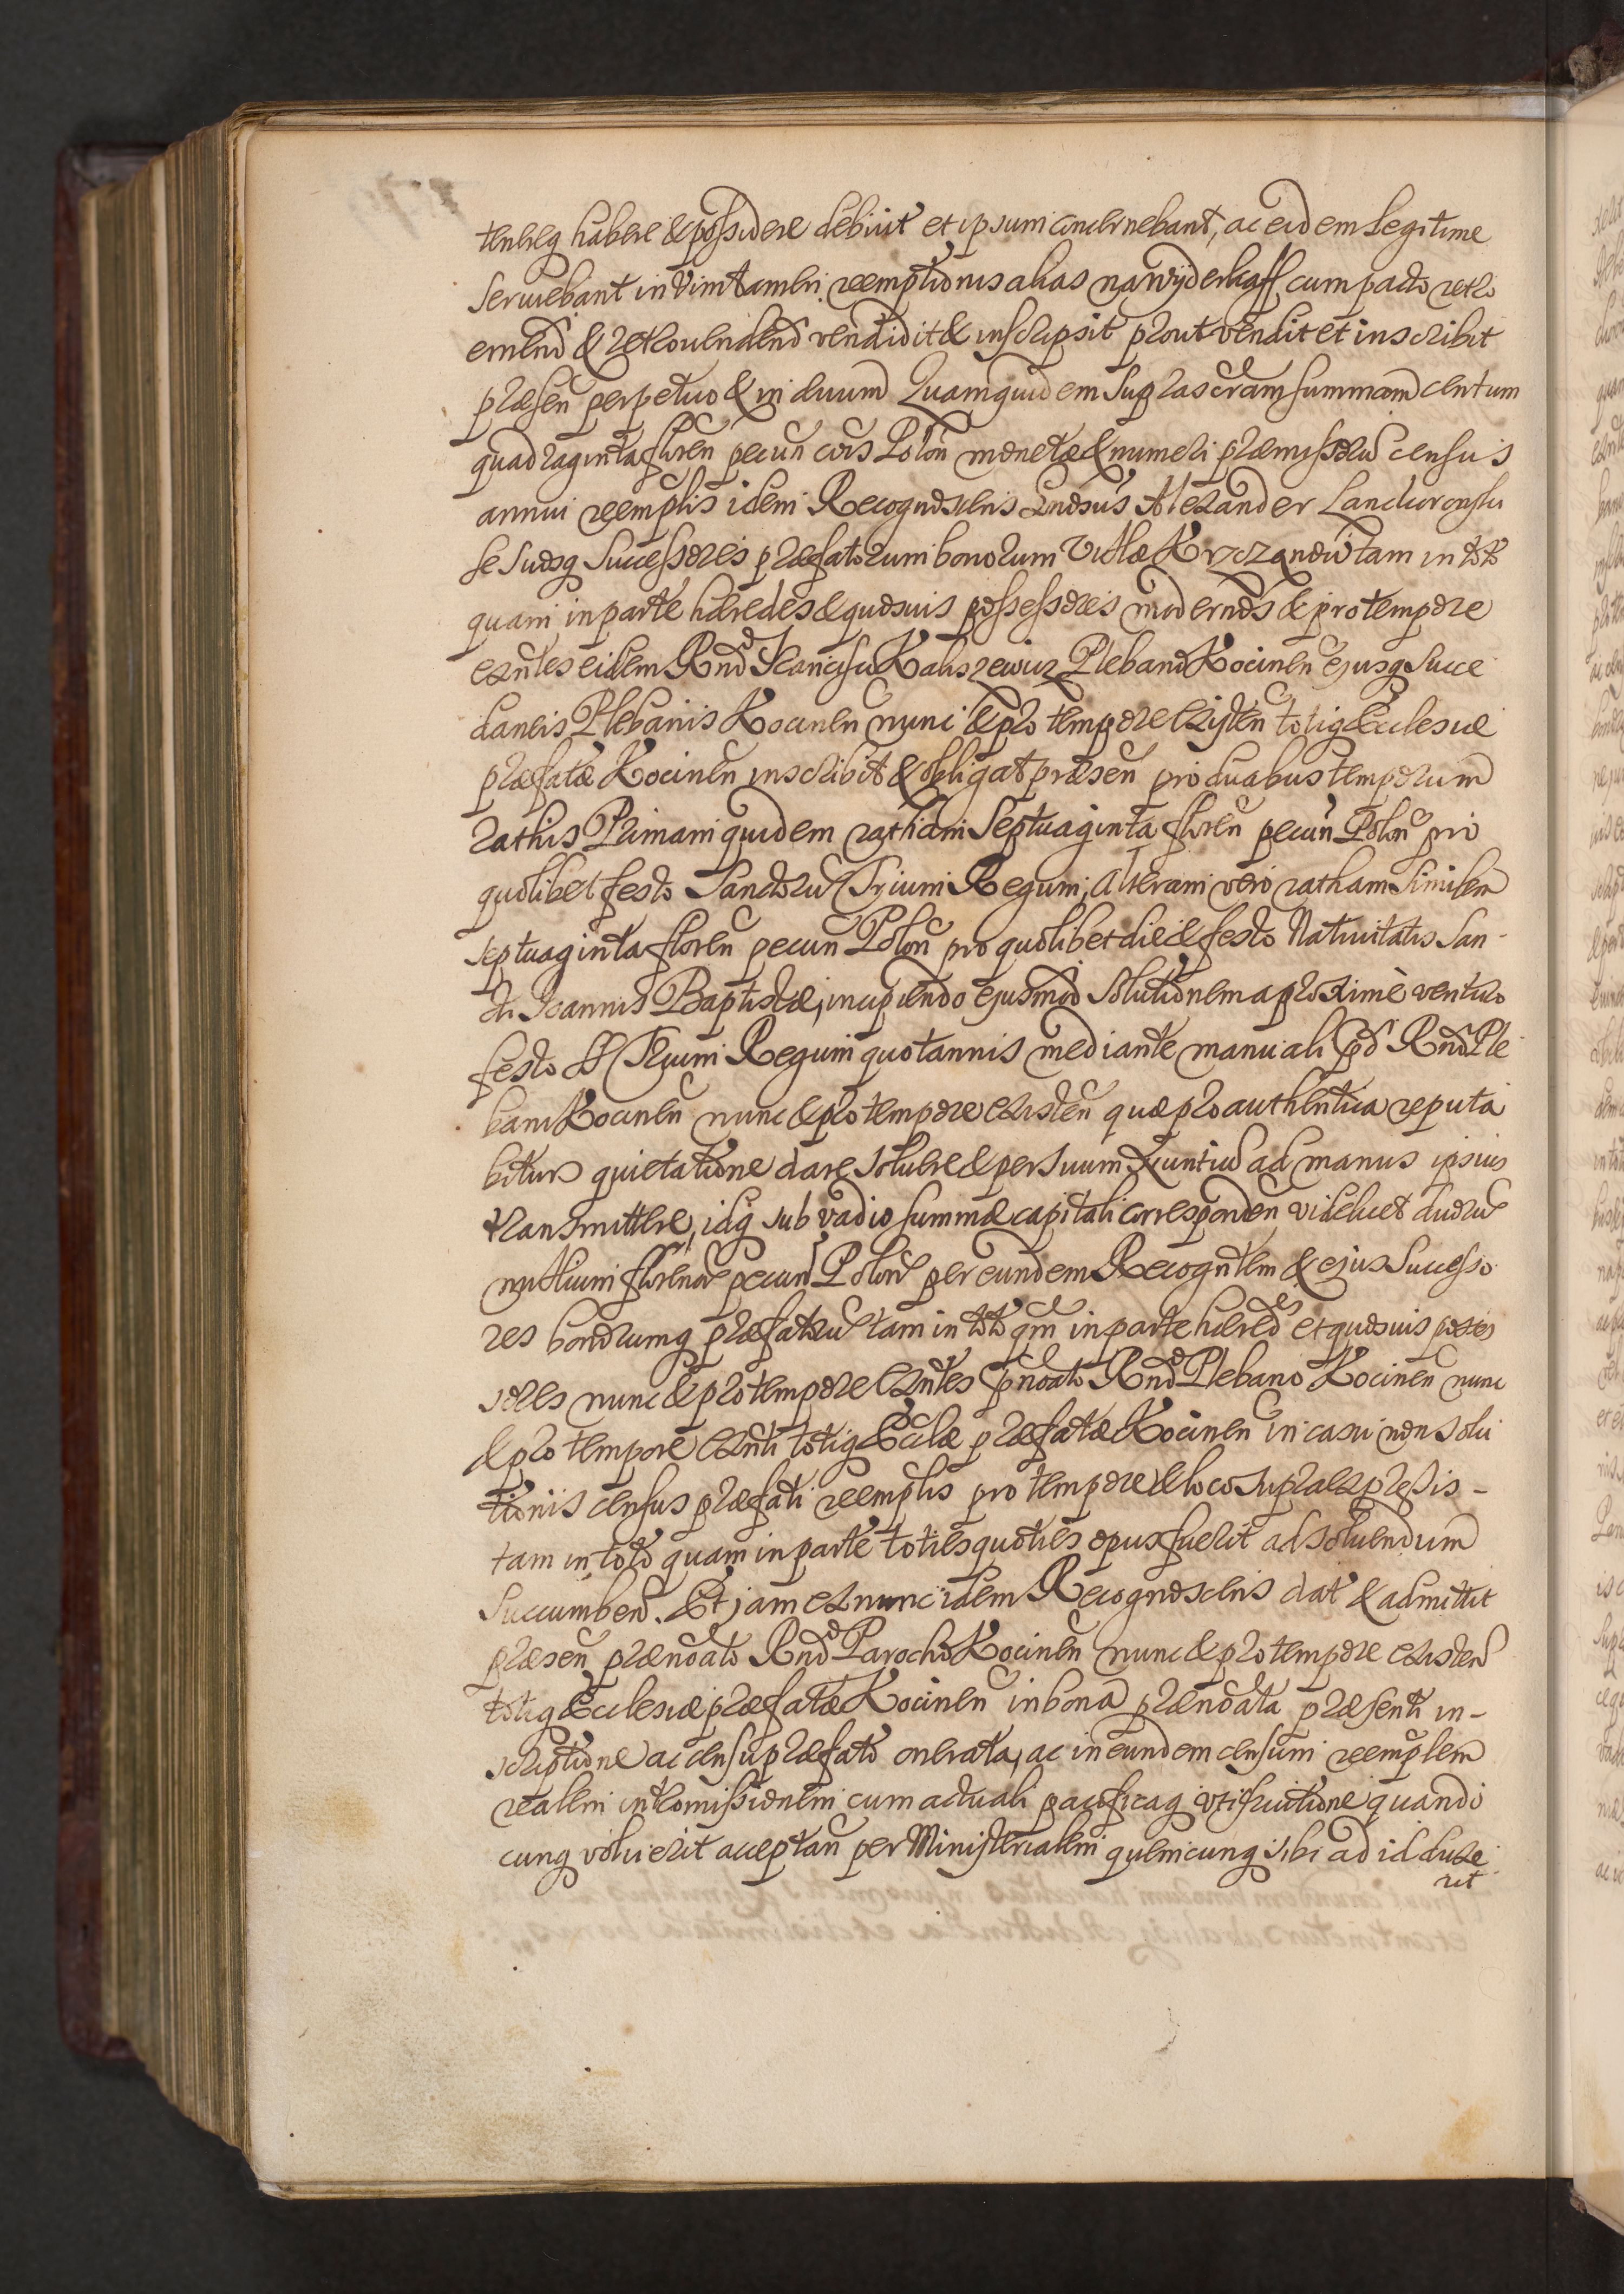 tenereq habere & possidere debuit et ipsum concernebant, ac eidem legitime
seruiebant in vim tamen reemptionis alias na wyderkaff cum pacto retro
emend & retrouendend vendidit & inscripsit prout vendit et inscribit
præsen perpetuo & in æuum Quamquidem suprascrám summam centum
quadraginta floren pecun cois Polon monetæ & numeri præmissoru census
annui reemplis idem Recognoscens Gndsus Alexander Lanckoronski
se suosq Successores præfatorum bonorum Villæ Krzczonow tam in toto
quam in parte hæredes & quosuis possessores modernos & pro tempore
exntes eidem Rnd Francisco Kaliszewicz Plebano Kocinen ejusq succe
daneis Plebanis Kocinen nunc & pro tempore existen totiq Ecclesiæ
præfatæ Kocinen inscribit & obligat præsen pro duabus temporum
rathis Primam quidem ratham Septuaginta floren pecun Polon pro
quolibet festo Sanctoru Trium Regum; alteram vero ratham similem
septuaginta floren pecun Polon pro quolibet die & festo Natiuitatis San-
cti Joannis Baptistæ, incipiendo ejusmod solutionem a proximè venturo
festo SS Trium Regum quotannis mediante manuali pd Rnd Ple
bani Kocinen nunc & pro tempore existen quæ pro authentica reputa
bitur quietatione dare soluere & per suum Nuntiu ad manus ipsius
transmittere, idq sub vadio summæ capitali corresponden videlicet duoru
millium florenor pecun Polon per eundem Recogntem & ejus Successo
res bonorumq præfatoru tam in toto qm in parte hæred et quosuis posses
sores nunc & pro tempore exntes pnoato Rnd Plebano Kocinen nunc
& pro tempore exnti totiq Ecclæ præfatæ Kocinen in casu non solu
tionis census præfati reemplis pro tempore & loco supraexpressis -
tam in toto quam in parte toties quoties opus fuerit ad soluendum
succumben. Et jam ex nunc idem Recognoscens dat & admittit
præsen prænoato Rnd Parocho Kocinen nunc & pro tempore existen
totiq Ecclesiæ præfatæ Kocinen in bona prænoata præsenti in-
scriptione ac censu præfato onerata, ac in eundem censum reemplem
realem intromissionem cum actuali pacificaq vtifruitione quando
cunq voluerit acceptan per Ministerialem quemcunq sibi ad id duxe
rit